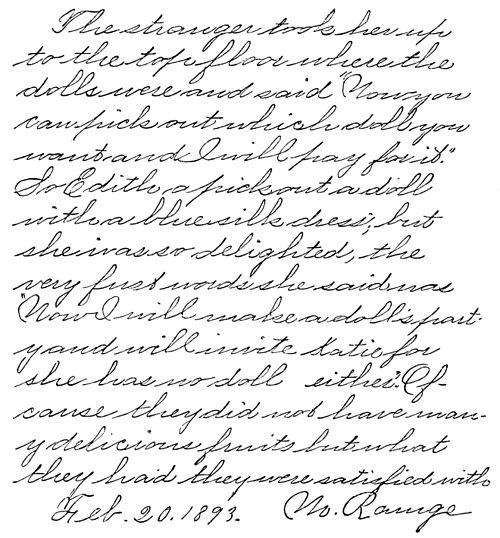 The stranger took her up
to the top floor where the
dolls were and said "Now you
can pick out which doll you
want and I will pay for it."
So Edith a pick out a doll
with a blue silk dress, but
she was so delighted, the
very first words she said was
"Now I will make a doll's part-
y and will invite Katie for
she has no doll either." Of-
cause they did not have man-
y delicious fruits but what
they had they were satisfied with
Feb. 20. 1893. M. Ramge